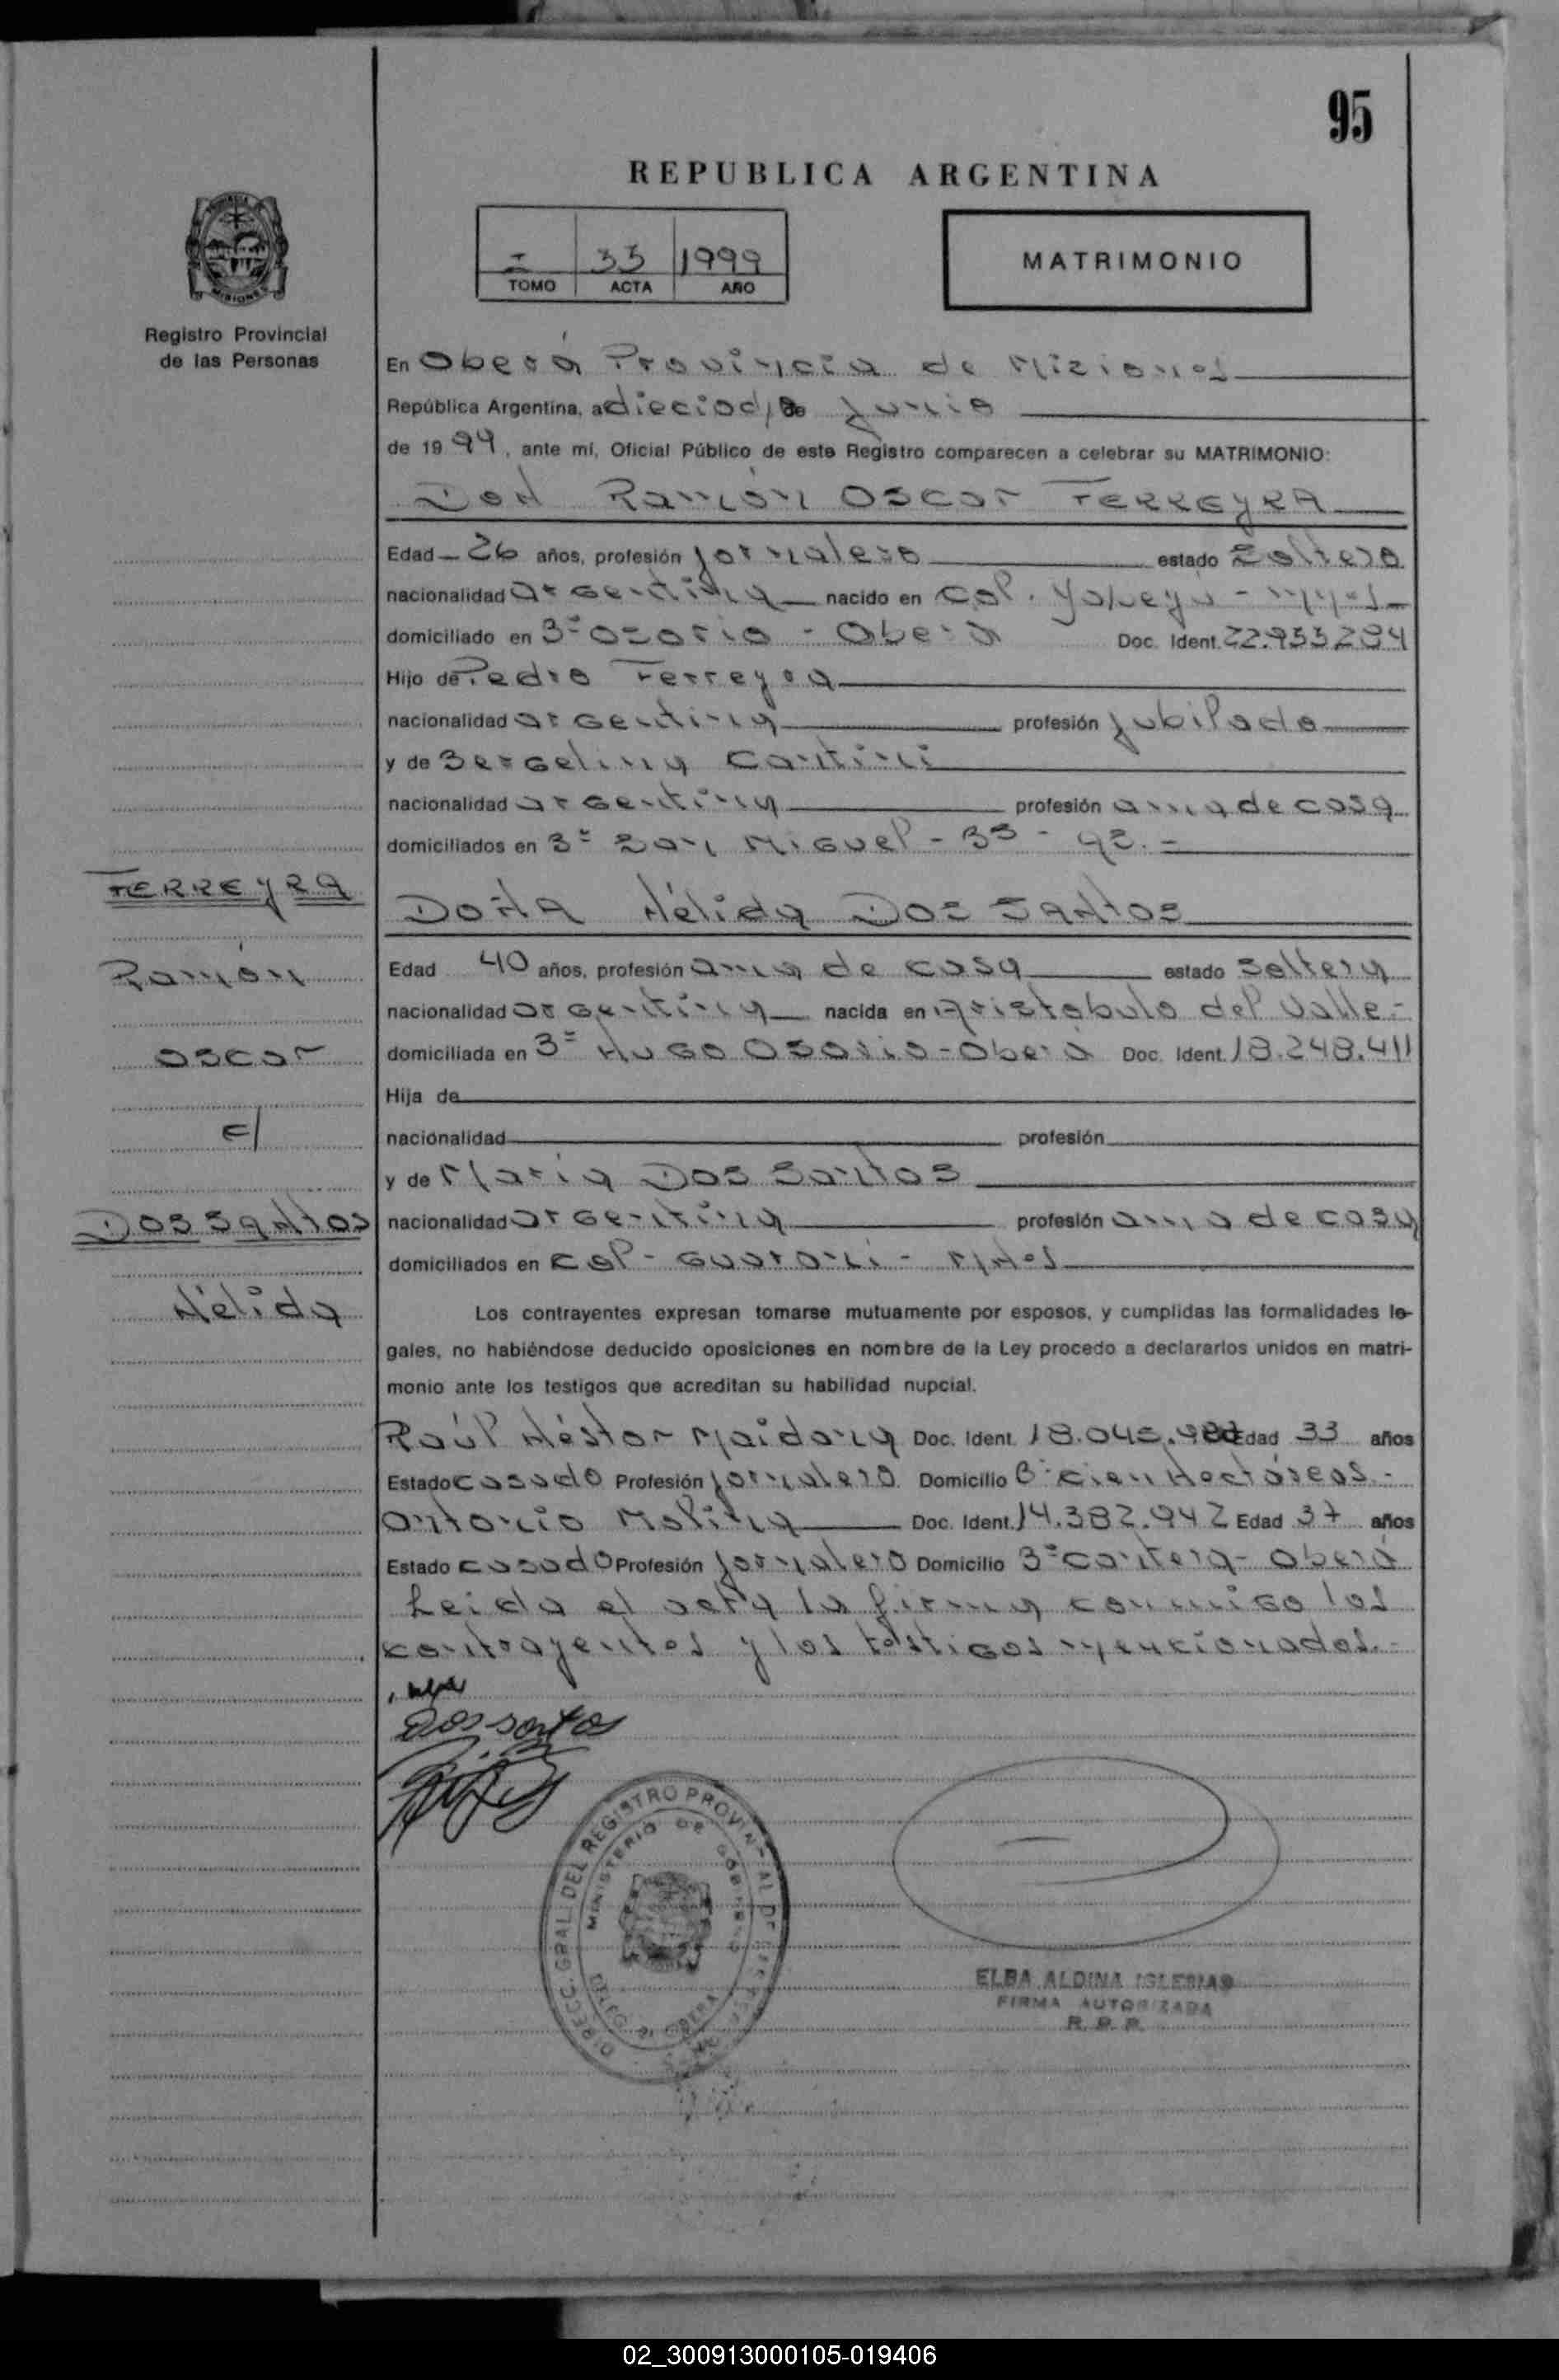 95
REPUBLICA ARGENTINA
I 33 1999
TOMO ACTA AÑO
MATRIMONIO
MISIONES
Registro Provincial
de las Personas
En Oberá Provincia de Misiones
República Argentina, a dieciocho de Junio
de 1999, ante mí, Oficial Público de este Registro comparecen a celebrar su MATRIMONIO:
Don Ramón Oscar FERREYRA
Edad 26 años, profesión jornalero estado soltero
nacionalidad argentina nacido en Col. Yapeyú - Mnes
domiciliado en Bº Osorio - Oberá Doc. Ident. 22.933.294
Hijo de Pedro Ferreyra
nacionalidad argentina profesión jubilado
y de Bergelina Cantini
nacionalidad argentina profesión ama de casa
domiciliados en Bº San Miguel - 33 - 93. =
FERREYRA
Ramón
Oscar
c/
DOS SANTOS
Nélida
DOÑA Nélida DOS SANTOS
Edad 40 años, profesión ama de casa estado soltera
nacionalidad argentina nacida en Aristóbulo del Valle -
domiciliada en Bº Hugo Osorio - Oberá Doc. Ident. 18.248.411
Hija de
nacionalidad profesión
y de María Dos Santos
nacionalidad argentina profesión ama de casa
domiciliados en Col - Guaraní - Mnes
Los contrayentes expresan tomarse mutuamente por esposos, y cumplidas las formalidades le-
gales, no habiéndose deducido oposiciones en nombre de la Ley procedo a declararlos unidos en matri-
monio ante los testigos que acreditan su habilidad nupcial.
Raúl Héstor Maidana Doc. Ident. Edad 33 años
Estado casado Profesión jornalero Domicilio Bº cien Hectáreas -
Antonio Molina Doc. Ident. 14.382.942 Edad 37 años
Estado casado Profesión jornalero Domicilio Bº Cantera - Oberá
Leida el acta la firman conmigo los
contrayentes y los testigos mencionados. -
Dos santos
DIRECC. GRAL. DEL REGISTRO PROVINCIAL DE LAS PERSONAS
MINISTERIO DE GOBIERNO
OBERA
ELBA ALDINA IGLESIAS
FIRMA AUTORIZADA
R. P. P.
02_300913000105-019406